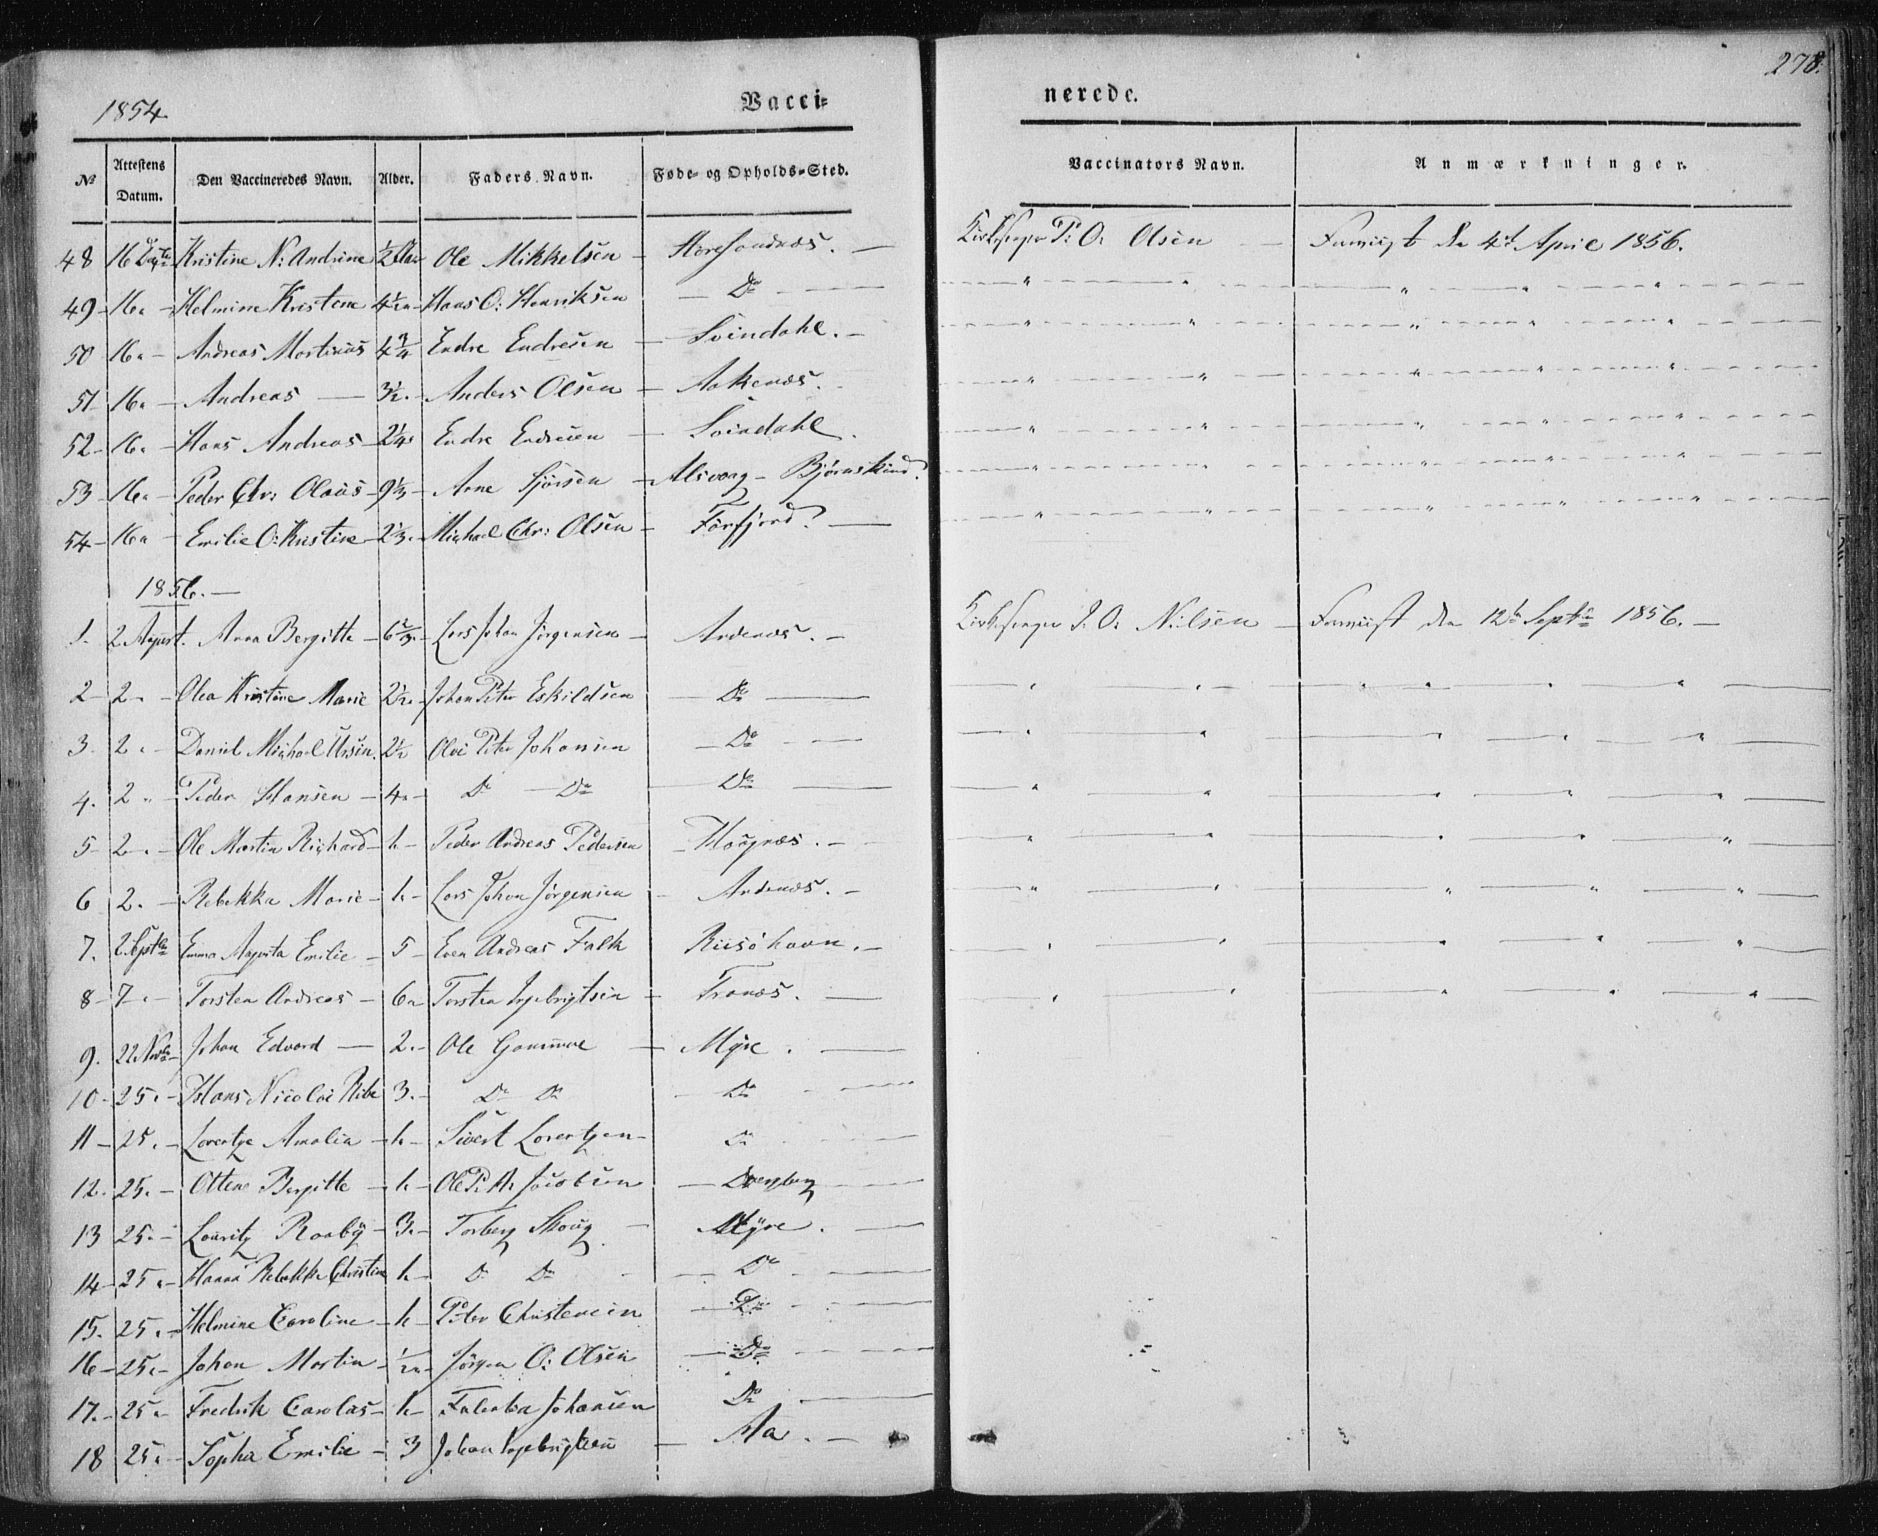 1854 Vacci= nerede. 278.
No Attestens Datum. Den Vaccineredes Navn. Alder. Faders Navn. Føde- og Opholds-Sted. Vaccinators Navn. Anmærkninger.
48 16 Kristine N: Andrine ½ Aar Ole Mikkelsen P: O: Olsen 4de April 1856.
49 16 " Helmine Kristine 4½ " Hans O: Henriksen Do
50 16 " Andreas Martinus 4¾ Endre Endresen Svindahl.
51 16 " Andreas 3½ " Anders Olsen Aaknæs.
52 16 " Hans Andreas 2¼ " Endre Endresen Svindahl.
53 16 " Peder Chr: Olaus 9⅓ Arne Alsvaag Bjørnskind
54 16 " Emilie O: Kristine 2⅓ " Michael Chr: Olsen Forfjord
1856.
1. 2 August. Anna Bergitte 6⅔ Lars Johan Jørgensen Andenæs. O: Nilsen den 12te Septbr 1856.
2 2 " Olea Kristine Marie 2½ " Johan Peter Eskildsen Do
3. 2 " Daniel Michael Ursin. 2½ Ole Peter Johansen Do
4. 2 " Peder Hansen 4 " Do Do Do
5 2 " Ole Martin Richard 1 " Peder Andreas Pedersen Haugnæs.
6 2 " Rebekka Marie 1 " Lars Johan Jørgensen Andenæs.
7. 2 Septbr Emma Augusta Emilie 5 Even Andreas Falk Riisøhavn.
8 7 " Torsten Andreas 6 " Torsten Ingebrigtsen Tranæs.
9. 22 Novbr Johan Edvard 2 " Ole Gammæ Myre.
10 25 " Hans Nicolai Ribe 3 " Do Do Do
11 25 " Lorentze Amalia 1 " Sivert Lorentzen Do
12. 25 " Ottene Bergitte 1 " Ole P: A: Jacobsen Dverberg
13 25 " Lauritz Raaby 3 " Torberg Skaug Myre.
14 25 " Hanna Rebekka Christine 1 " Do Do Do
15. 25 " Helmine Caroline 1 " Peter Christensen Do
16 25 " Johan Martin ½ " Jørgen O: Olsen Do
17. 25 " Fredrik Carolas 1 " Johansen Do
18 25 " Sopha Emilie 3 Johan Ingebrigtsen Aa.